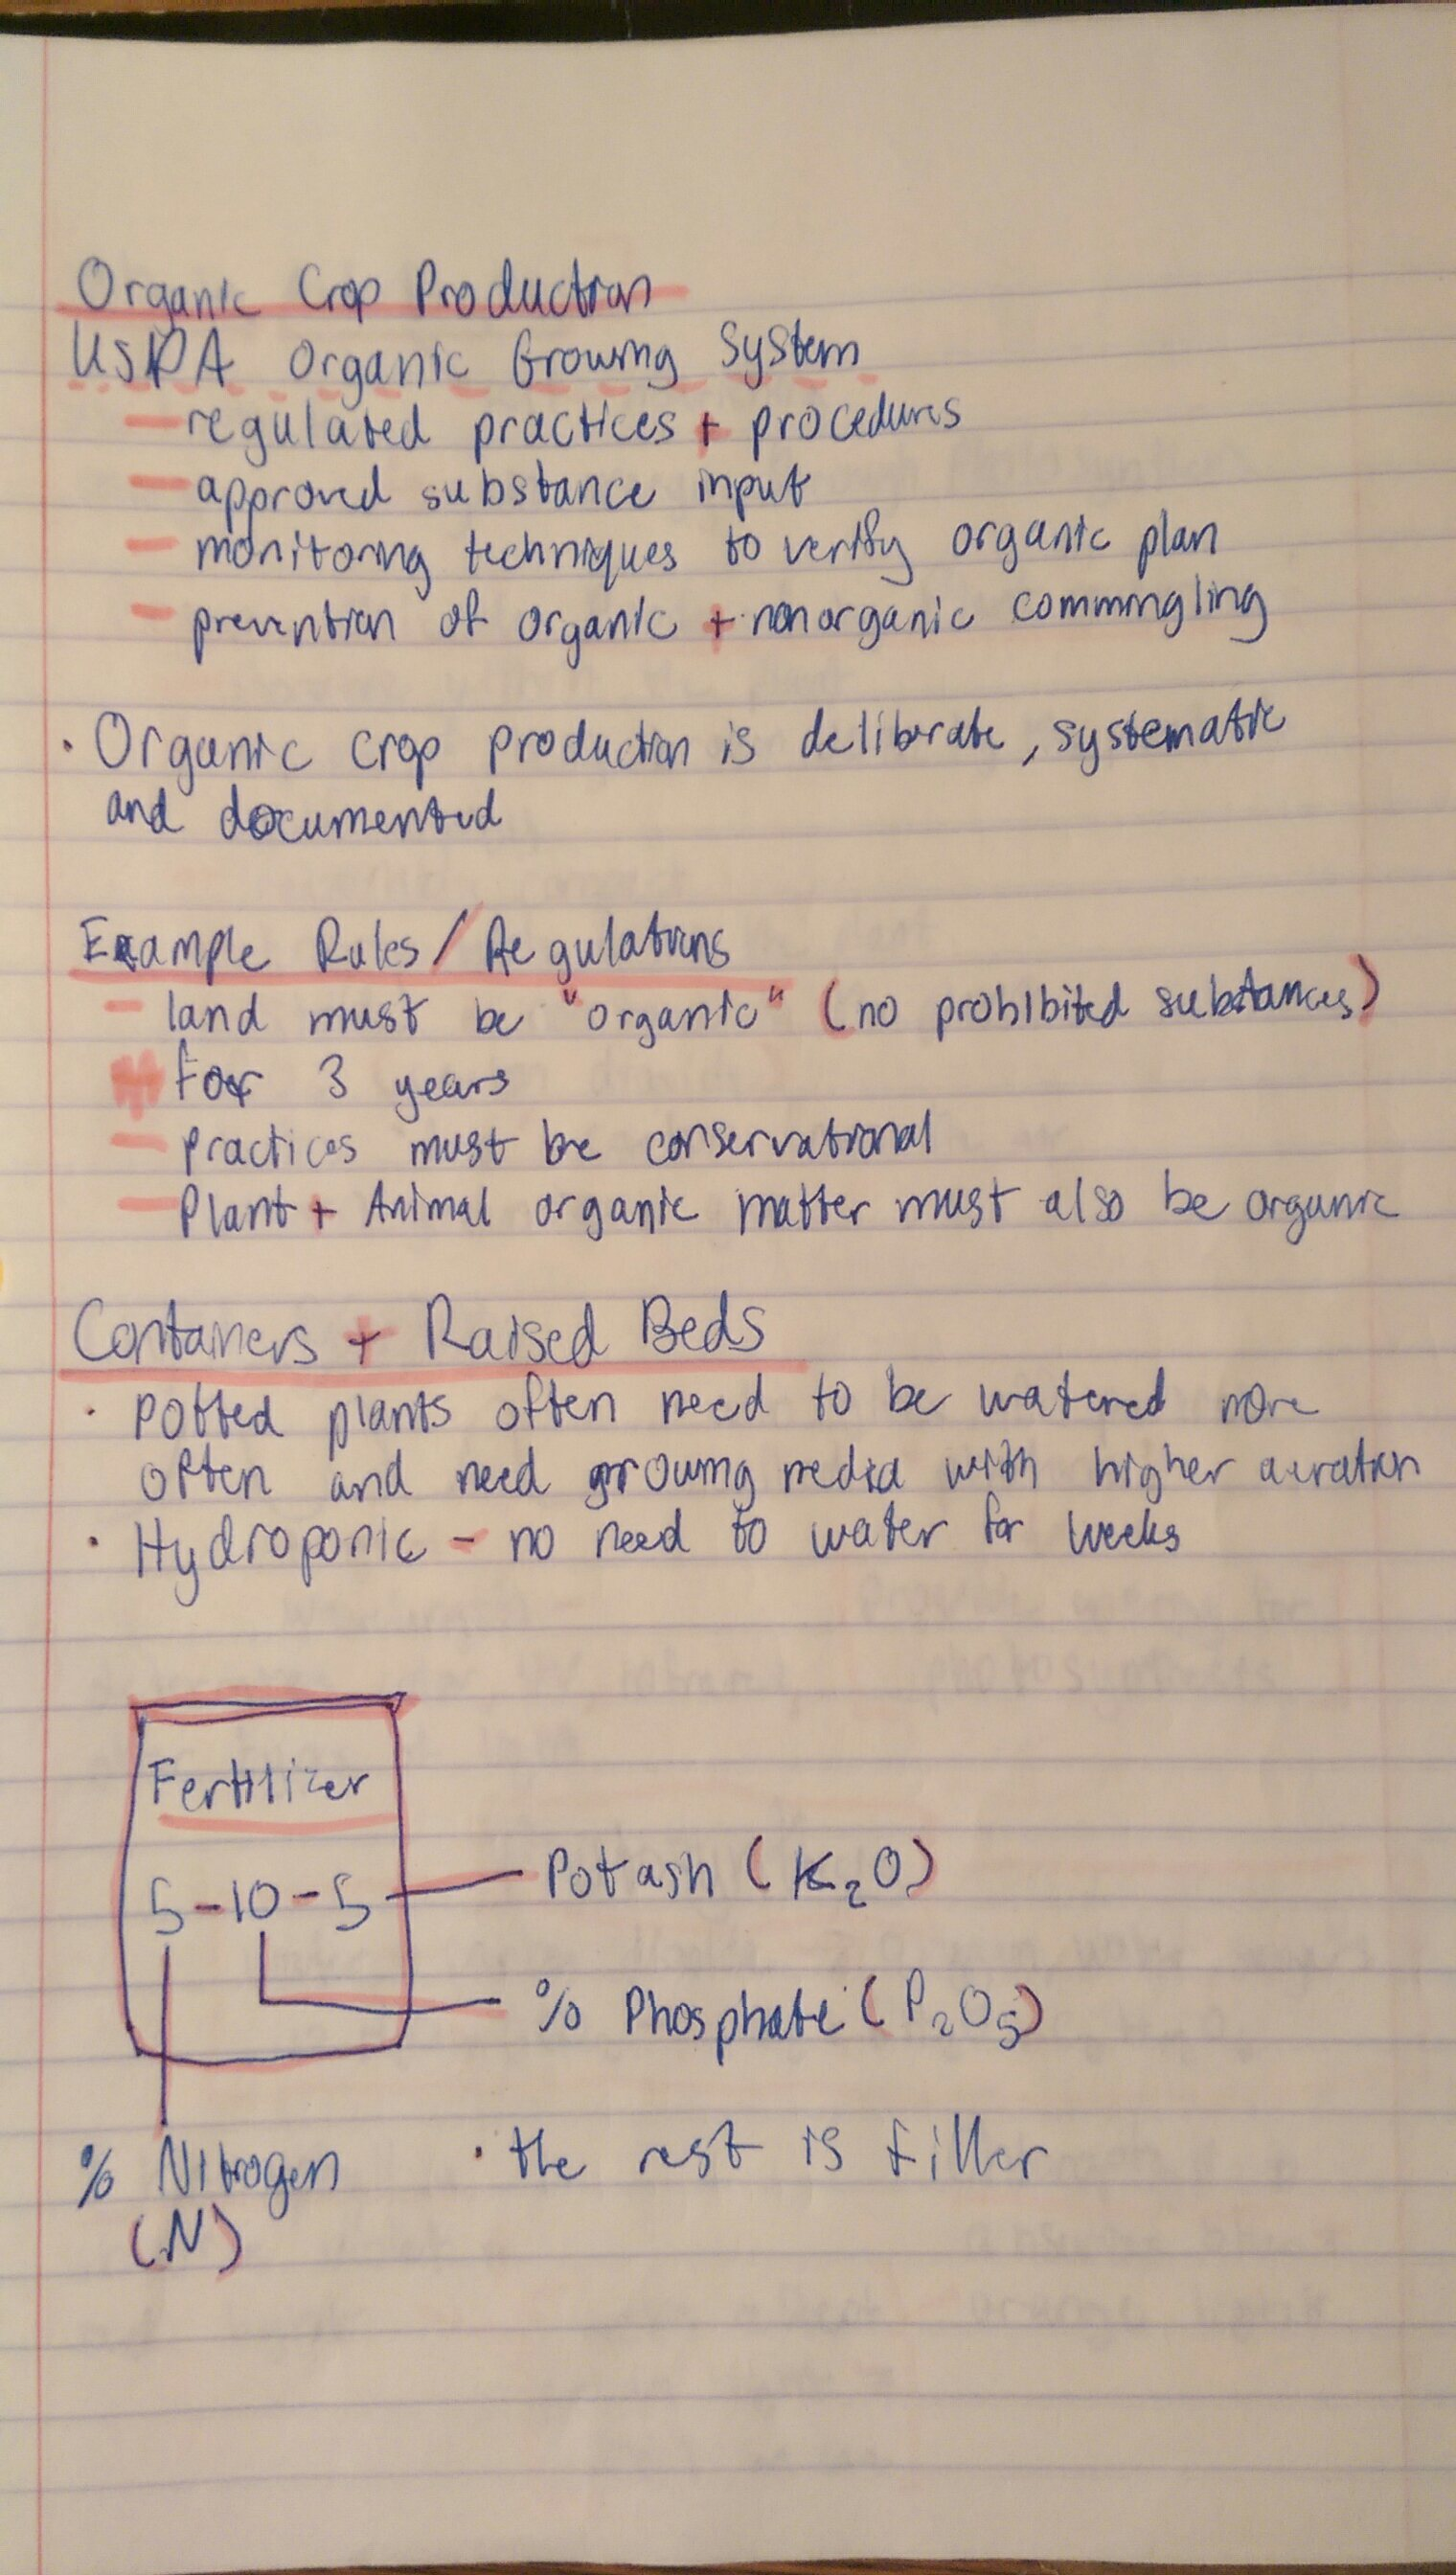 Organic Crop Production
USDA Organic Growing System
- regulated practices + procedures
- approved substance input
- monitoring techniques to verify organic plan
- prevention of organic + nonorganic commingling
· Organic crop production is deliberate, systematic
and documented
Example Rules / Regulations
- land must be "organic" (no prohibited substances)
for 3 years
- practices must be conservational
- Plant + Animal organic matter must also be organic
Containers + Raised Beds
· potted plants often need to be watered more
often and need growing media with higher aeration
· Hydroponic - no need to water for weeks
Fertilizer
5-10-5
Potash (K₂O)
% Phosphate (P₂O₅)
% Nitrogen
(N)
· the rest is filler